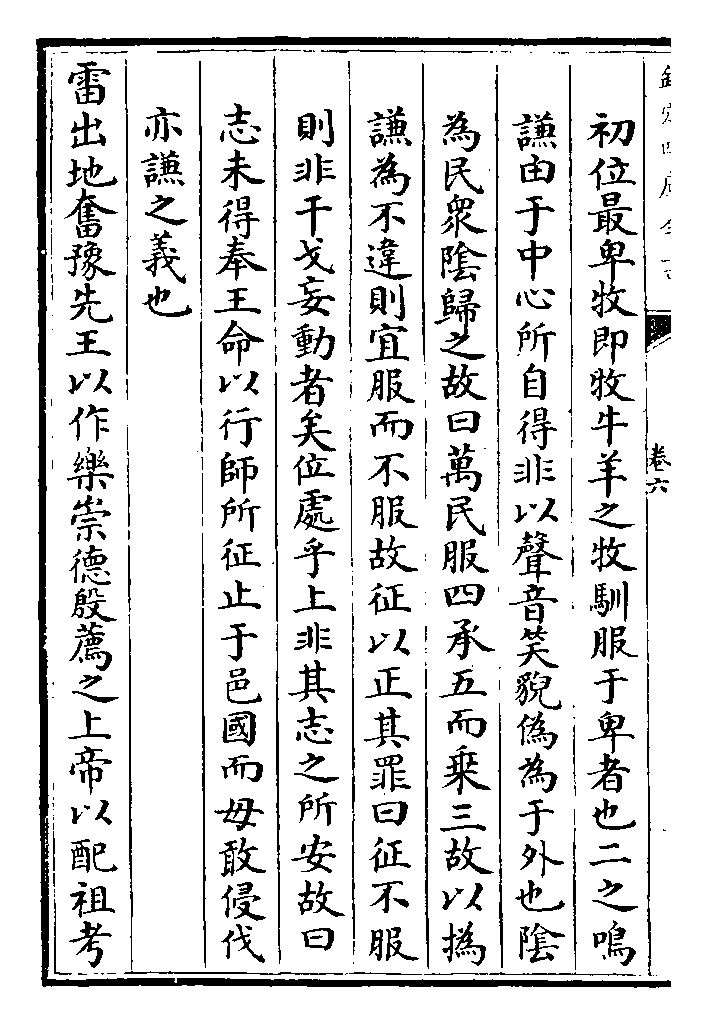 欽定四庫全書
卷六
初位最卑牧即牧牛羊之牧馴服于卑者也二之鳴
謙由于中心所自得非以聲音笑貌僞為于外也陰
為民衆陰歸之故曰萬民服四承五而乗三故以撝
謙為不違則宜服而不服故征以正其罪曰征不服
則非干戈妄動者矣位處乎上非其志之所安故曰
志未得奉王命以行師所征止于邑國而毋敢侵伐
亦謙之義也
雷出地奮豫先王以作樂崇德殷薦之上帝以配祖考